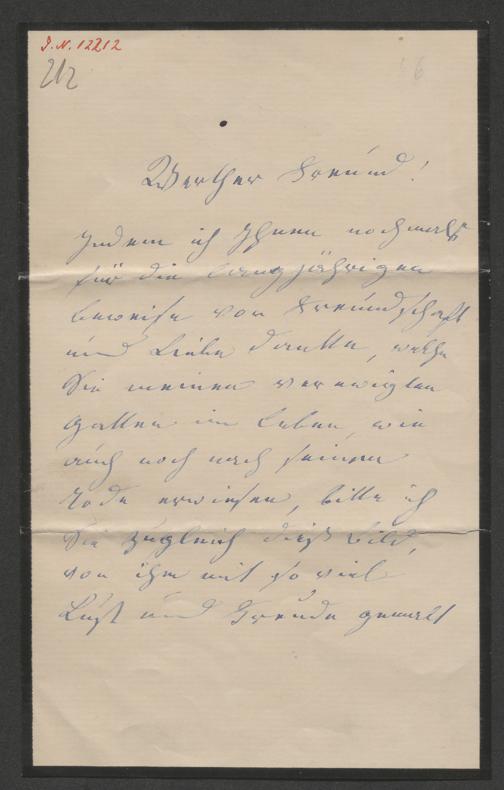 J. N. 12212
212
6
Werther Freund!
Indem ich Ihnen nochmals
für die langjährigen
Beweise von Freundschaft
und Liebe danke, welche
Sie meinen verewigten
Gatten im Leben, wie
auch noch nach seinem
Tode erwiesen, bitte ich
Sie zugleich dieß Bild,
von ihm mit so viel
Lust und Freude gemalt